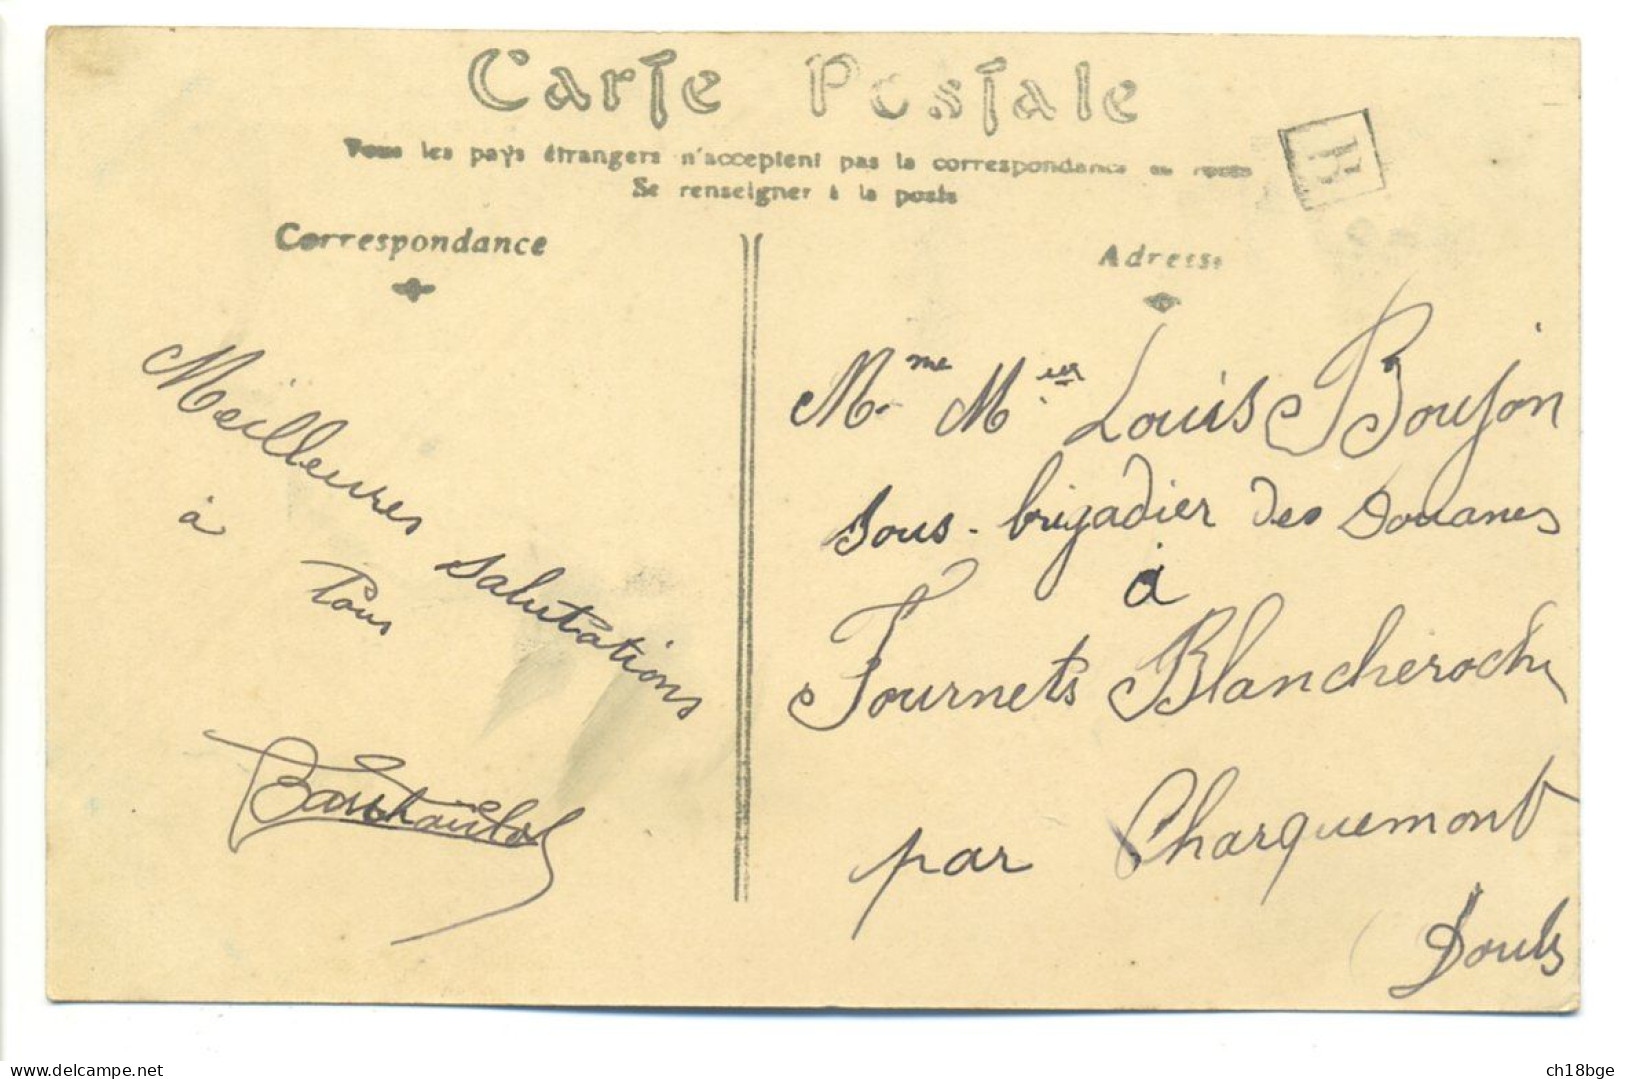 Carte Postale
Tous les pays étrangers n'acceptent pas la correspondance au recto
Se renseigner à la poste
B
Correspondance
Adresse
Meilleures salutations
à Tous
Mme Mieur Louis Boujon
sous-brigadier des Douanes
à
Fournets Blancheroche
par Charquemont
Doubs
delcampe.net
ch18bge